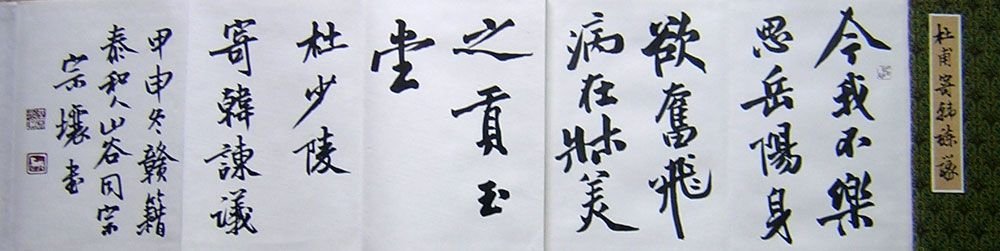 杜甫寄韩諫议
今我不樂
思岳陽身
欲奮飛
病在牀美
之貢玉
堂
杜少陵
寄韓諫議
甲申冬赣籍
泰和人山谷同宗
宗壤書